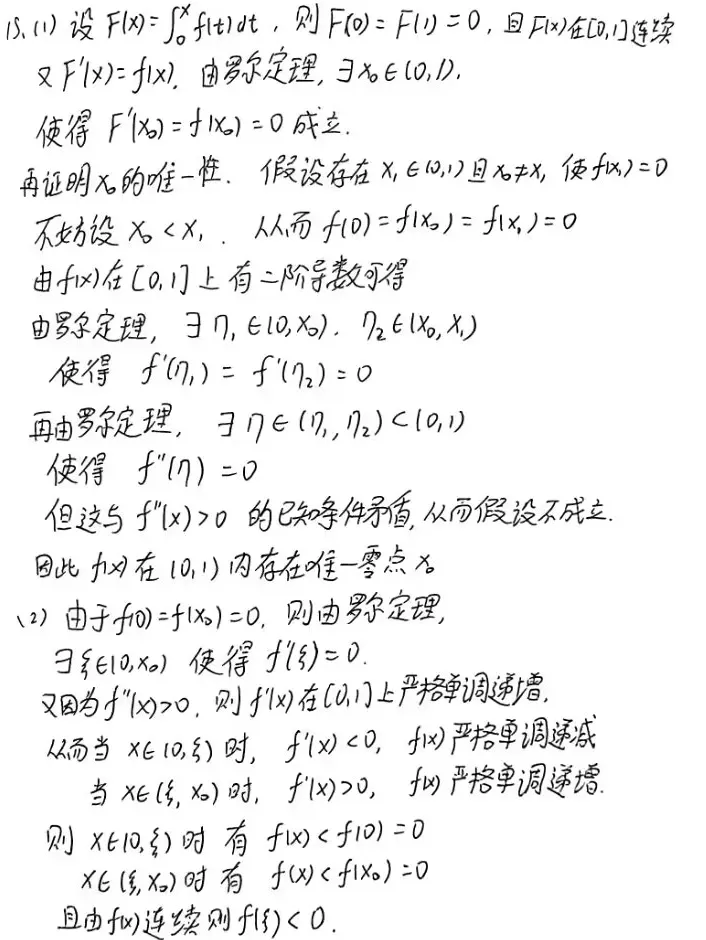 15. (1) 设 F(x)=∫₀ˣ f(t)dt, 则 F(0)=F(1)=0, 且F(x)在[0,1]连续
又 F'(x)=f(x), 由罗尔定理, ∃x₀∈(0,1),
使得 F'(x₀)=f(x₀)=0 成立.
再证明x₀的唯一性. 假设存在 x₁∈(0,1)且x₀≠x₁ 使f(x₁)=0
不妨设 x₀<x₁. 从而 f(0)=f(x₀)=f(x₁)=0
由f(x)在[0,1]上有二阶导数可得
由罗尔定理, ∃η₁∈(0,x₀), η₂∈(x₀,x₁)
使得 f'(η₁)=f'(η₂)=0
再由罗尔定理, ∃η∈(η₁,η₂)⊂(0,1)
使得 f''(η)=0
但这与 f''(x)>0 的已知条件矛盾, 从而假设不成立.
因此 f(x) 在(0,1)内存在唯一零点 x₀
(2) 由于f(0)=f(x₀)=0, 则由罗尔定理,
∃ξ∈(0,x₀) 使得 f'(ξ)=0.
又因为f''(x)>0, 则f'(x)在[0,1]上严格单调递增,
从而当 x∈(0,ξ)时, f'(x)<0, f(x)严格单调递减
当 x∈(ξ,x₀)时, f'(x)>0, f(x)严格单调递增.
则 x∈(0,ξ)时 有 f(x)<f(0)=0
x∈(ξ,x₀)时 有 f(x)<f(x₀)=0
且由f(x)连续则f(ξ)<0.